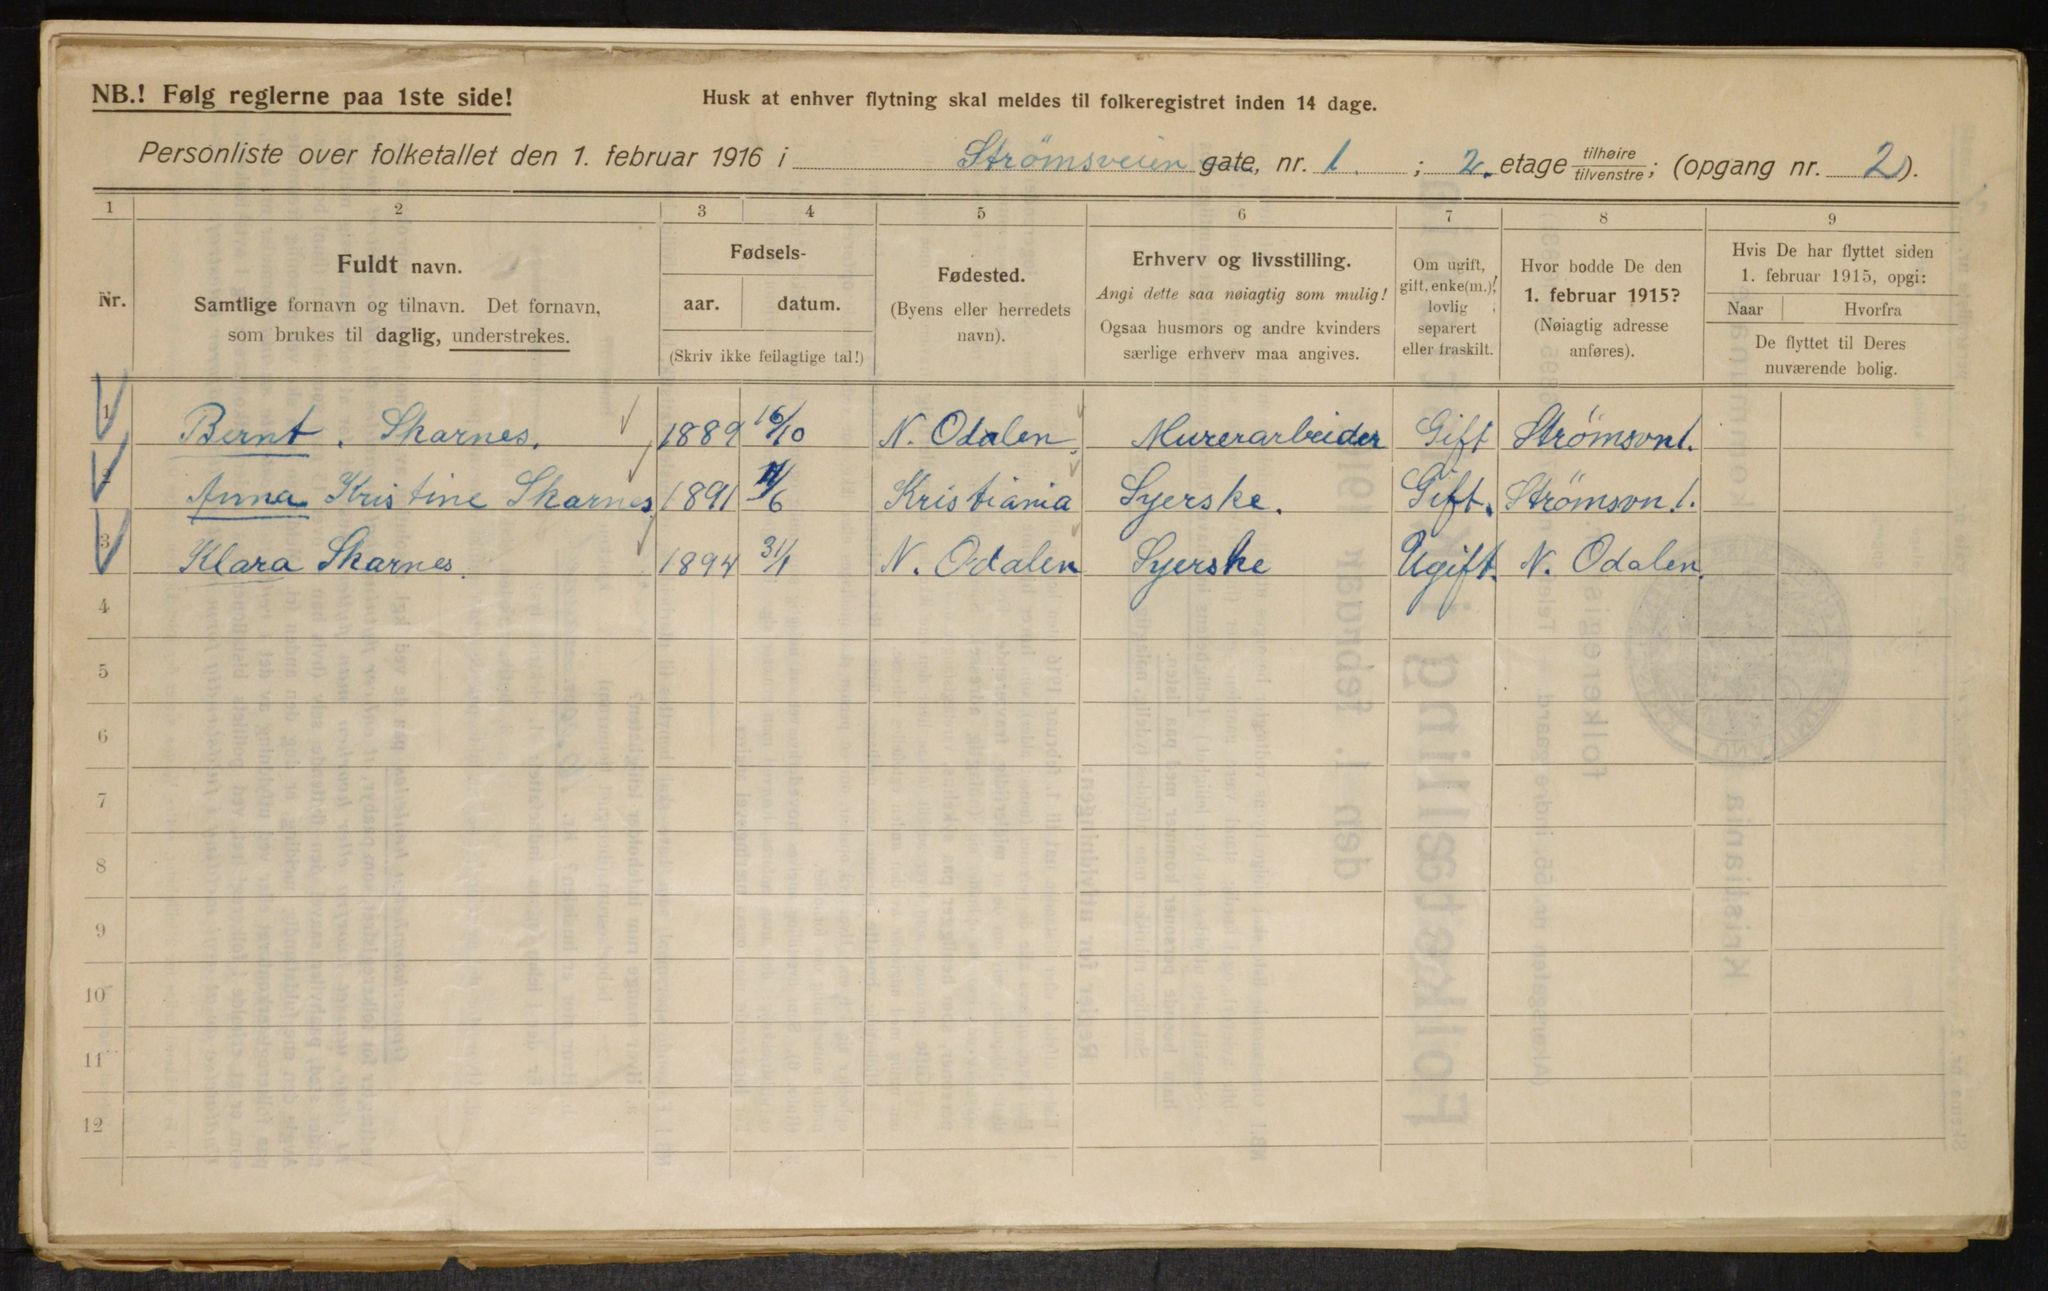 NB.! Følg reglerne paa 1ste side!
Husk at enhver flytning skal meldes til folkeregistret inden 14 dage.
Personliste over folketallet den 1. februar 1916 i Strømsveien gate, nr. 1. ; 2. etage tilhøire tilvenstre; (opgang nr. 2).
1 2 3 4 5 6 7 8 9
Nr.
Fuldt navn.
Samtlige fornavn og tilnavn. Det fornavn,
som brukes til daglig, understrekes.
Fødsels-
aar. datum.
(Skriv ikke feilagtige tal!)
Fødested.
(Byens eller herredets
navn).
Erhverv og livsstilling.
Angi dette saa nøiagtig som mulig!
Ogsaa husmors og andre kvinders
særlige erhverv maa angives.
Om ugift,
gift, enke(m.),
lovlig
separert
eller fraskilt.
Hvor bodde De den
1. februar 1915?
(Nøiagtig adresse
anføres).
Hvis De har flyttet siden
1. februar 1915, opgi:
Naar Hvorfra
De flyttet til Deres
nuværende bolig.
1 Bernt. Skarnes. 1889 16/10 N. Odalen. Murerarbeider Gift Strømsvn 1.
2 Anna Kristine Skarnes. 1891 /6 Kristiania Syerske. Gift. Strømsvn 1.
3 Klara Skarnes. 1894 31/1 N. Odalen Syerske Ugift. N. Odalen.
4
5
6
7
8
9
10
11
12